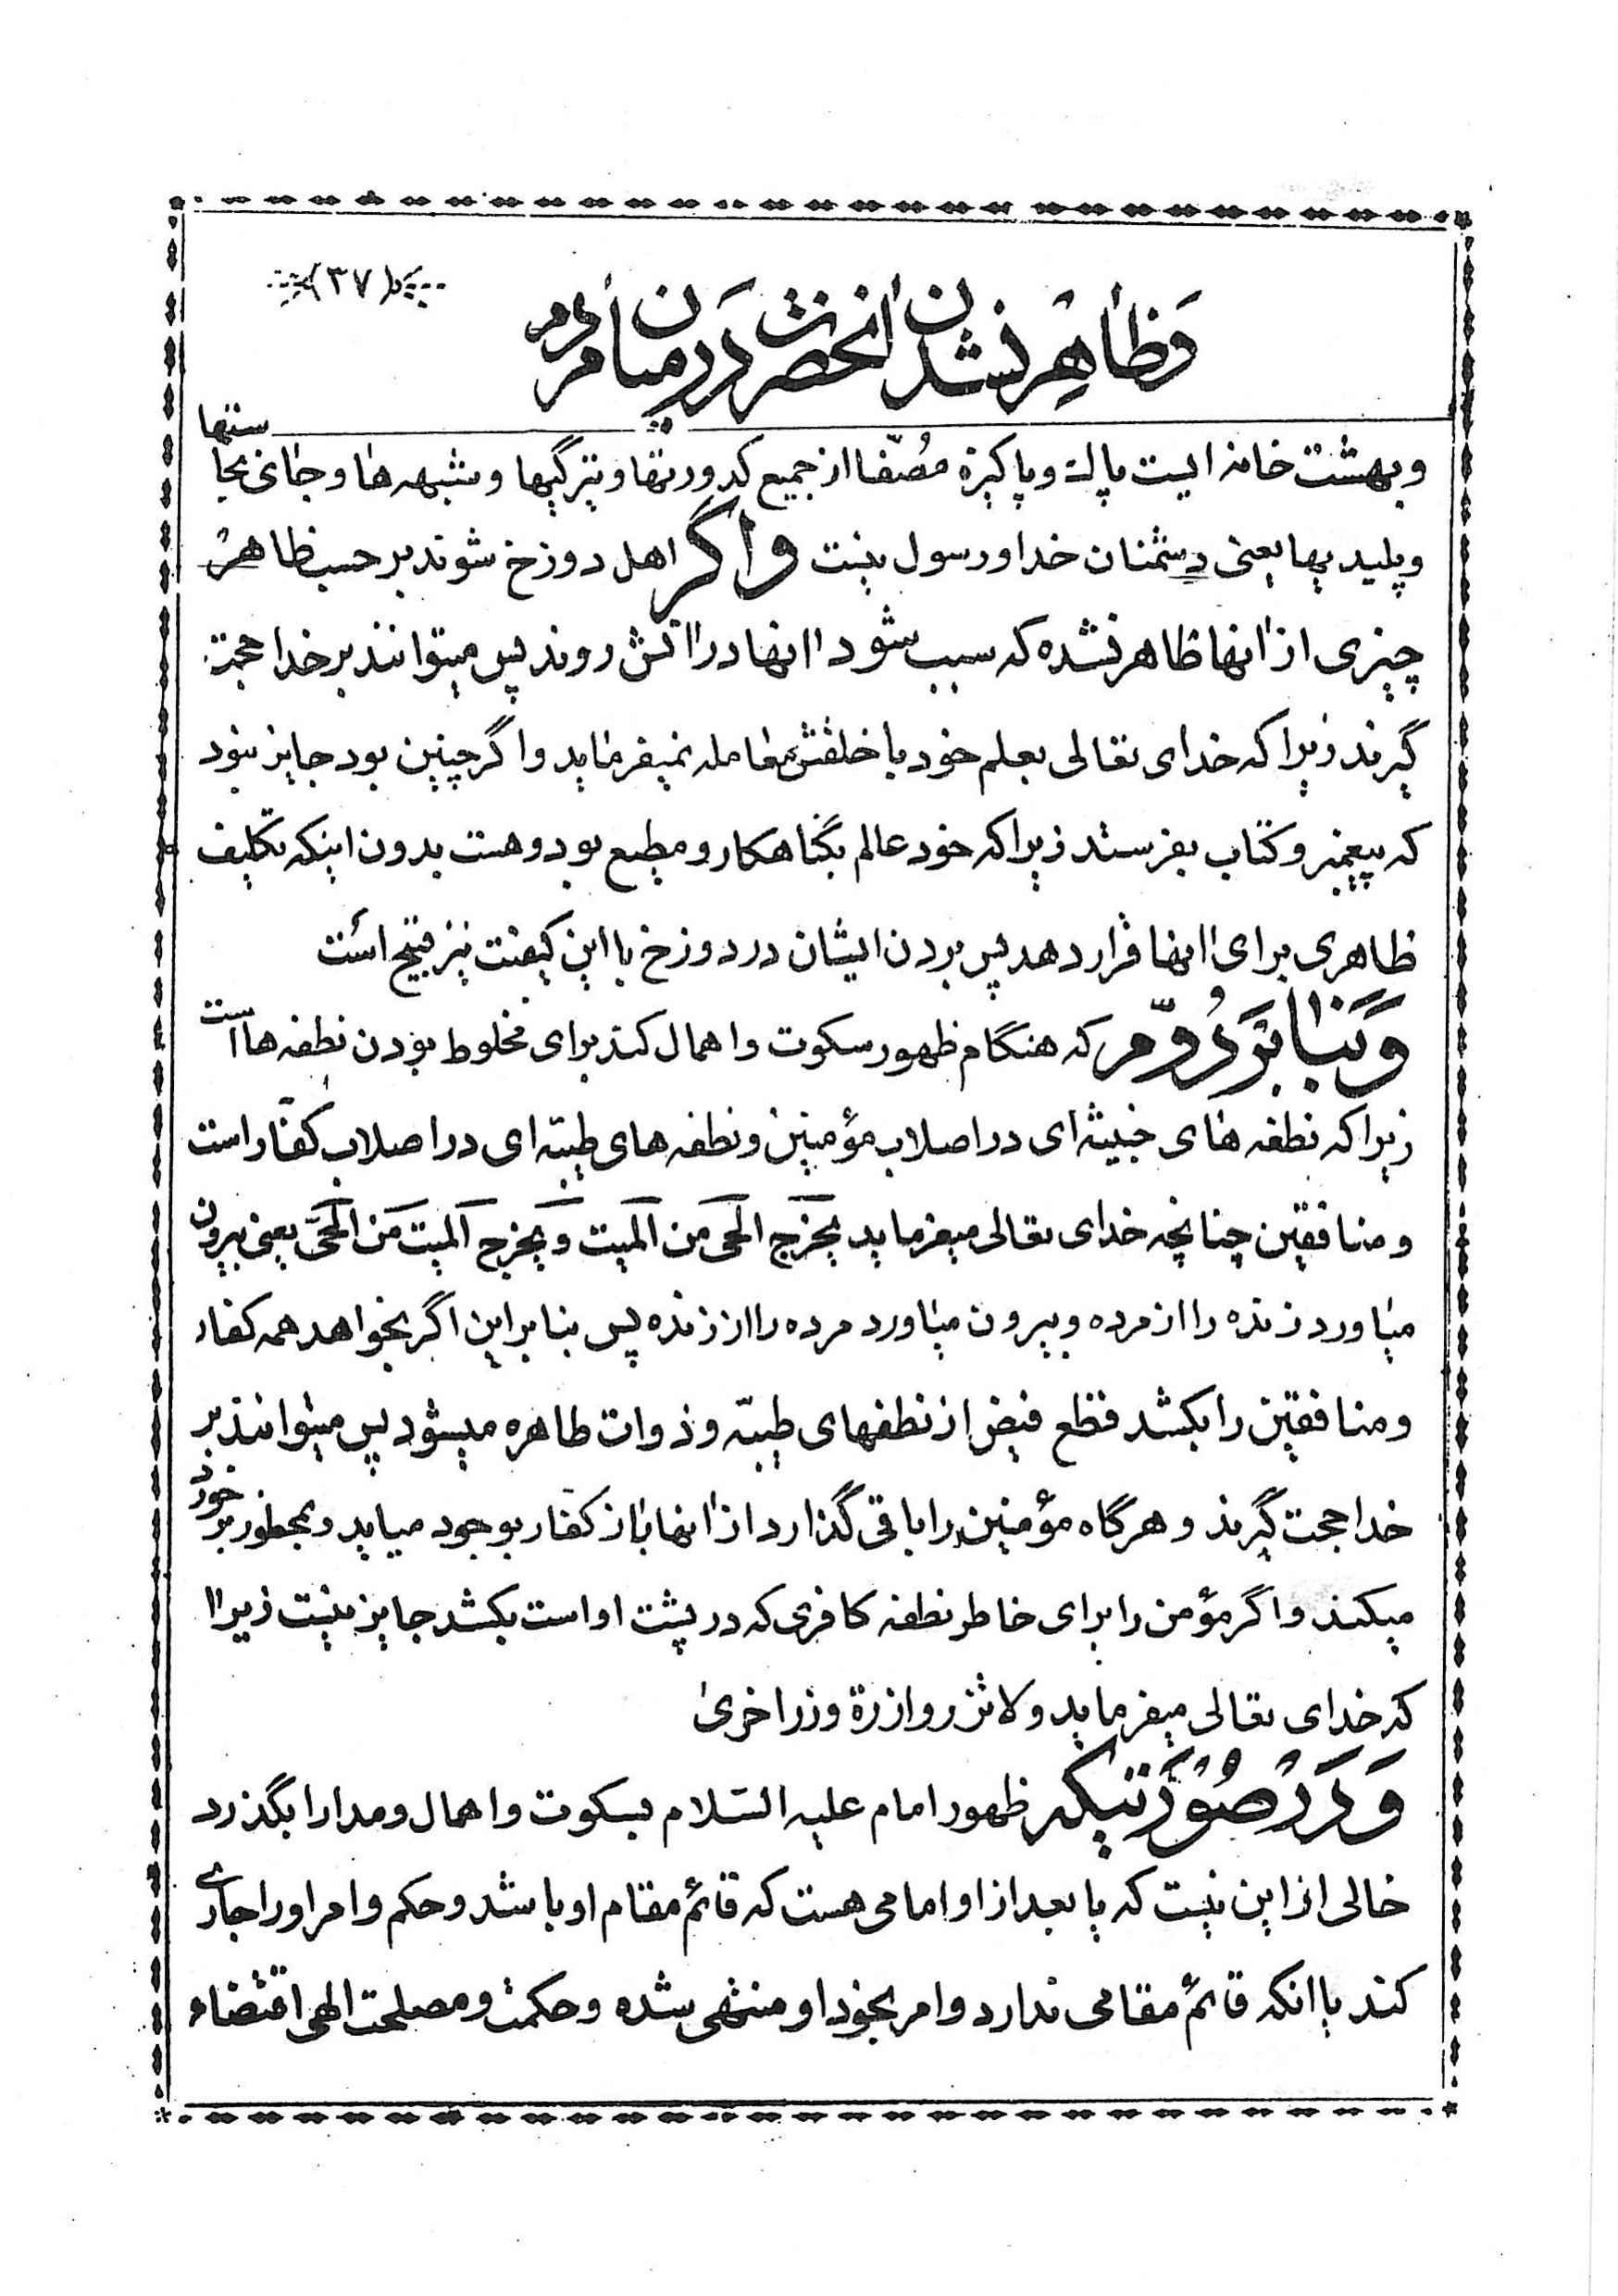 (۳۷)
و ظاهر نشدن انحضرت در میان مردم
و بهشت خانه ایست پاك و پاکیزه مُصفّا از جمیع کدورتها و تیرگیها و شبهه ها و جای نجاستها
و پلیدیها یعنی دشمنان خدا و رسول نیست و اگر اهل دوزخ شوند بر حسب ظاهر
چیزی از انها ظاهر نشده که سبب شود انها در اتش روند پس میتوانند بر خدا حجّت
گیرند زیرا که خدای تعالی بعلم خود با خلقش معامله نمیفرماید و اگر چنین بود جایز نبود
که پیغمبر و کتاب بفرستد زیرا که خود عالم بگناهکار و مطیع بود و هست بدون اینکه تکلیف
ظاهری برای انها قرار دهد پس بردن ایشان در دوزخ با این کیفیت نیز قبیح است
و بنا بر دوّم که هنگام ظهور سکوت و اهمال کند برای مخلوط بودن نطفه ها است
زیرا که نطفه های خبیثه ای در اصلاب مؤمنین و نطفه های طیّبه ای در اصلاب کفّار است
و منافقین چنانچه خدای تعالی میفرماید یخرج الحی من المیت و یخرج المیت من الحیّ یعنی بیرون
میاورد زنده را از مرده و بیرون میاورد مرده را از زنده پس بنا براین اگر بخواهد همه کفار
و منافقین را بکشد قطع فیض از نطفهای طیبّه و ذوات طاهره میشود پس میتوانند بر
خدا حجت گیرند و هر گاه مؤمنین را باقی گذارد از انها باز کفّار بوجود میاید و بمحظور بر خورد
میکند و اگر مؤمن را برای خاطر نطفه کافری که در پشت او است بکشد جایز نیست زیرا
که خدای تعالی میفرماید ولا تزر وازرة وزر اخری
و در صورتیکه ظهور امام علیه السّلام بسکوت و اهمال و مدارا بگذرد
خالی از این نیست که یا بعد از او امامی هست که قائم مقام او باشد و حکم و امر او را جاری
کند یا انکه قائم مقامی ندارد و امر بخود او منتهی شده و حکمت و مصلحت الهی اقتضاء